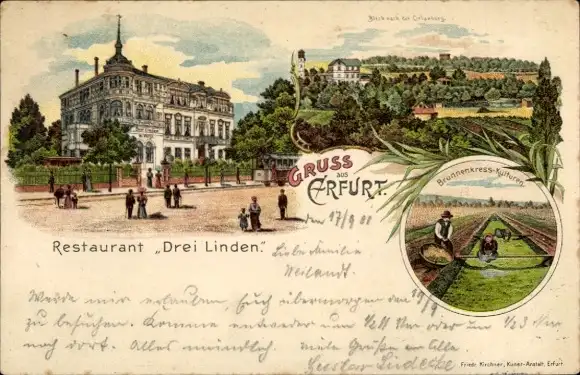 Blick nach der Cyriaxburg.
GRUSS
aus
ERFURT.
Brunnenkress-Kulturen.
Restaurant „Drei Linden."
den 17/9 01
Liebe Familie
Weilandt.
Werde mir erlauben, Euch übermorgen den 19/9
zu besuchen. Komme entweder um ½11 Uhr oder um ½3 Uhr
nach dort. Alles mündlich. Viele Grüße an Alle
Gustav Lüdecke
Friedr. Kirchner, Kunst-Anstalt, Erfurt.